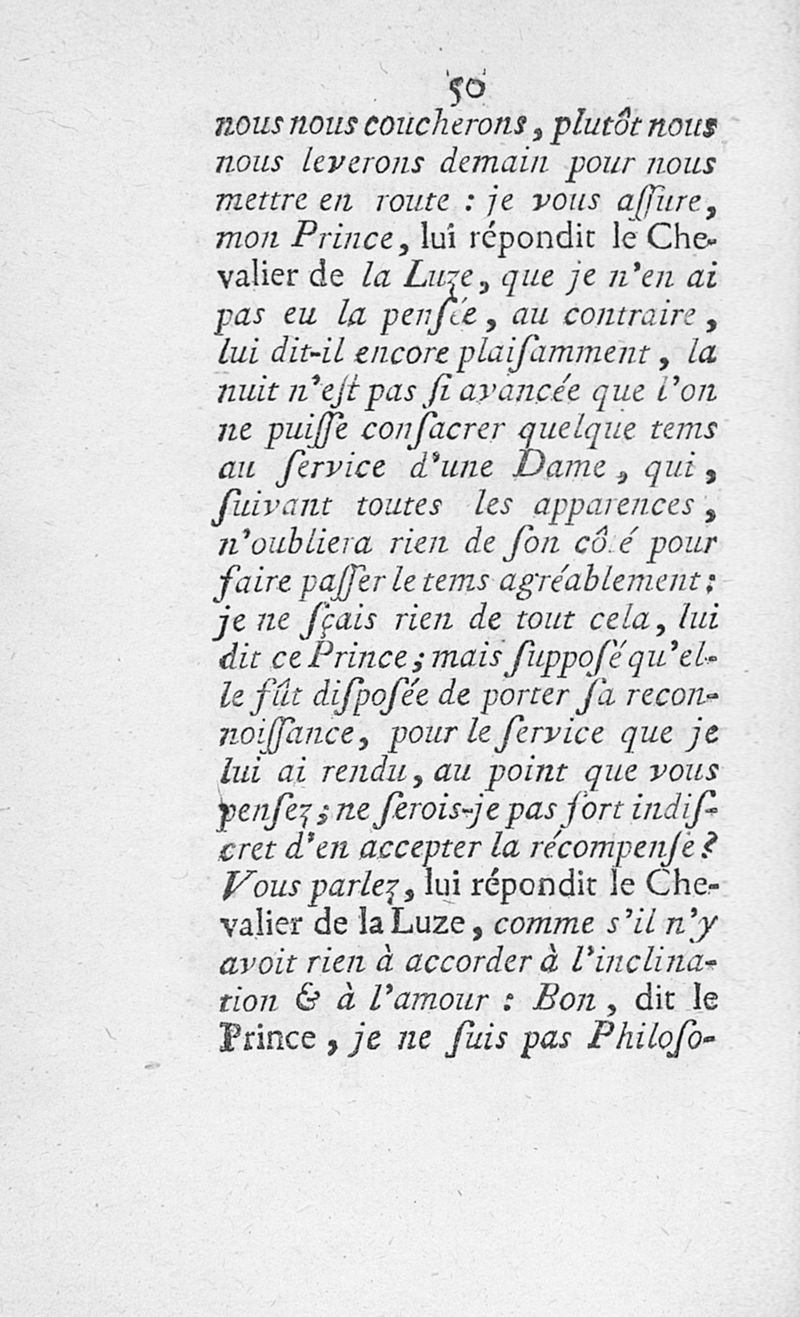 50
nous nous coucherons, plutôt nous
nous leverons demain pour nous
mettre en route : je vous aſſure,
mon Prince, lui répondit le Che-
valier de la Luze, que je n'en ai
pas eu la penſée, au contraire,
lui dit-il encore plaiſamment, la
nuit n'eſt pas ſi avancée que l'on
ne puiſſe conſacrer quelque tems
au ſervice d'une Dame, qui,
ſuivant toutes les apparences,
n'oubliera rien de ſon cô é pour
faire paſſer le tems agréablement;
je ne ſçais rien de tout cela, lui
dit ce Prince; mais ſuppoſé qu'el-
le fût diſpoſée de porter ſa recon-
noiſſance, pour le ſervice que je
lui ai rendu, au point que vous
penſez; ne ſerois-je pas fort indiſ-
cret d'en accepter la récompenſe?
Vous parlez, lui répondit le Che-
valier de la Luze, comme s'il n'y
avoit rien à accorder à l'inclina-
tion & à l'amour : Bon, dit le
Prince, je ne ſuis pas Philoſo-